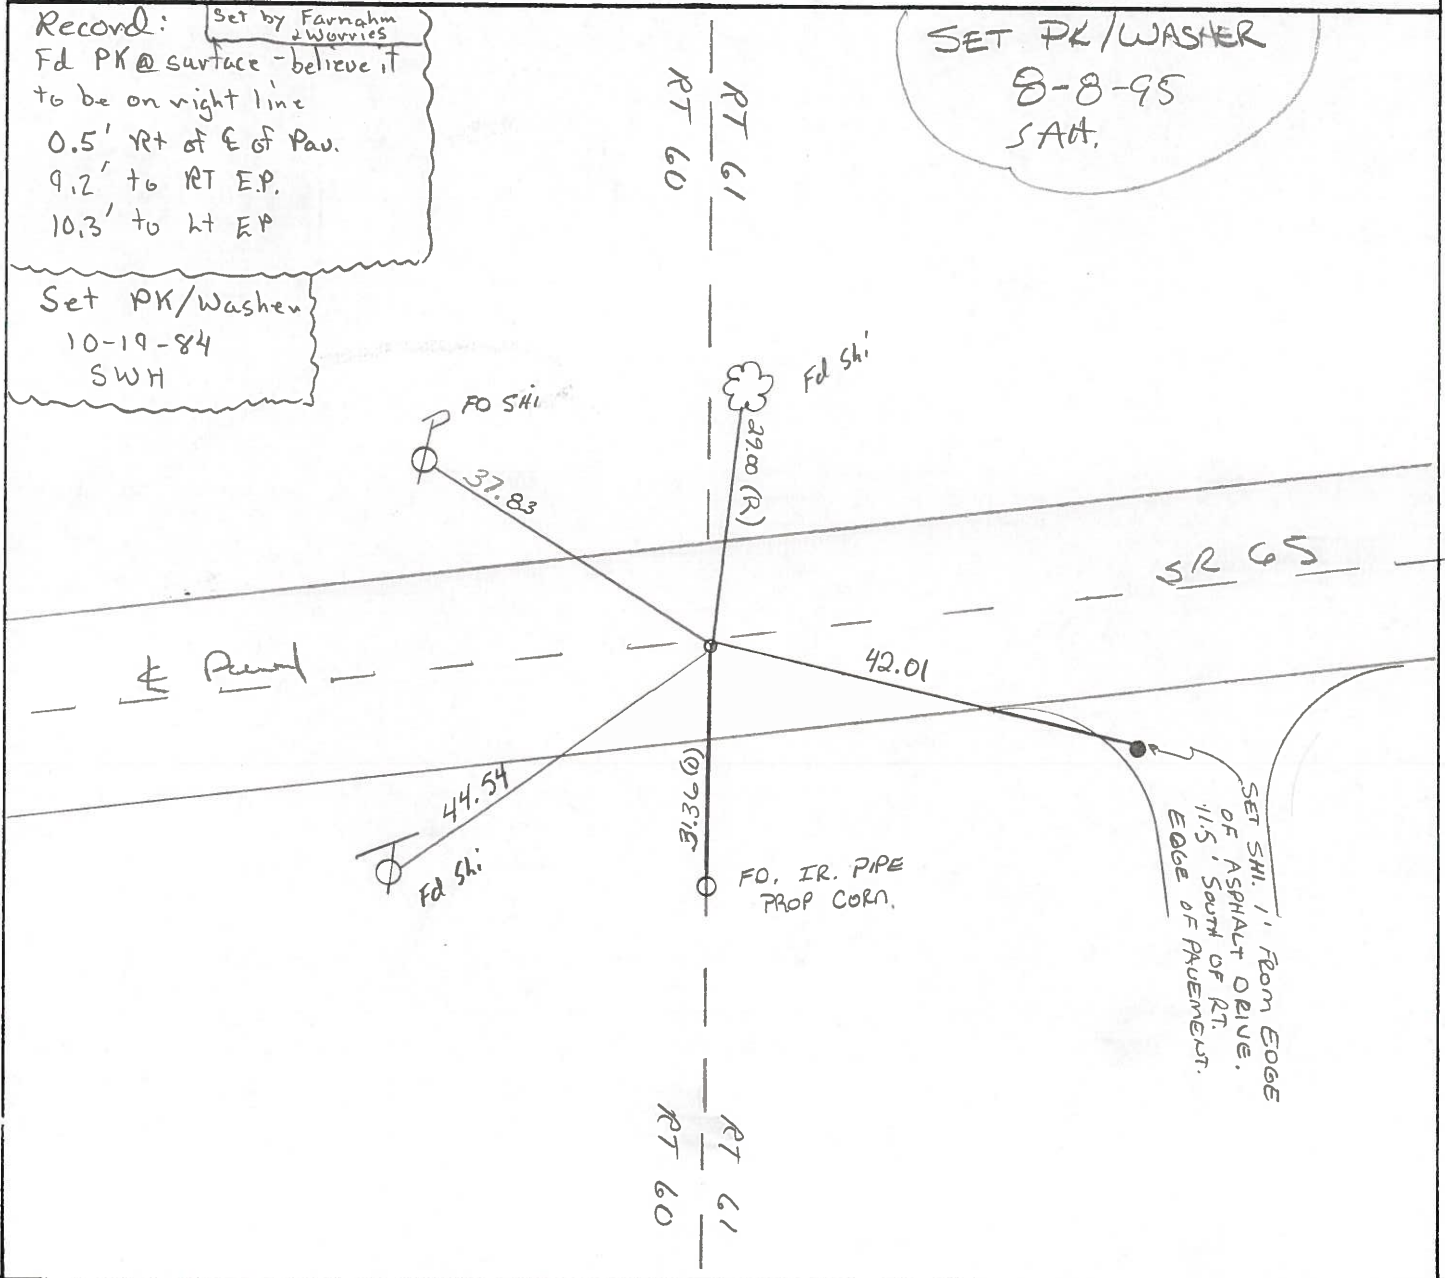 Record:
Set by Farnahm
& Worries
Fd PK @ surface - believe it
to be on right line
0.5' Rt of ℄ of Pav.
9.2' to RT E.P.
10.3' to Lt EP
Set PK/Washer
10-19-84
SWH
RT 60
RT 61
SET PK/WASHER
8-8-95
SAH.
FD SHi
37.83
Fd Shi
29.00 (R)
SR 65
℄
42.01
44.54
Fd Shi
FD. IR. PIPE
PROP CORN.
SET SHI. 1' FROM EDGE
OF ASPHALT DRIVE.
11.5' SOUTH OF RT.
EDGE OF PAVEMENT.
RT 60
RT 61